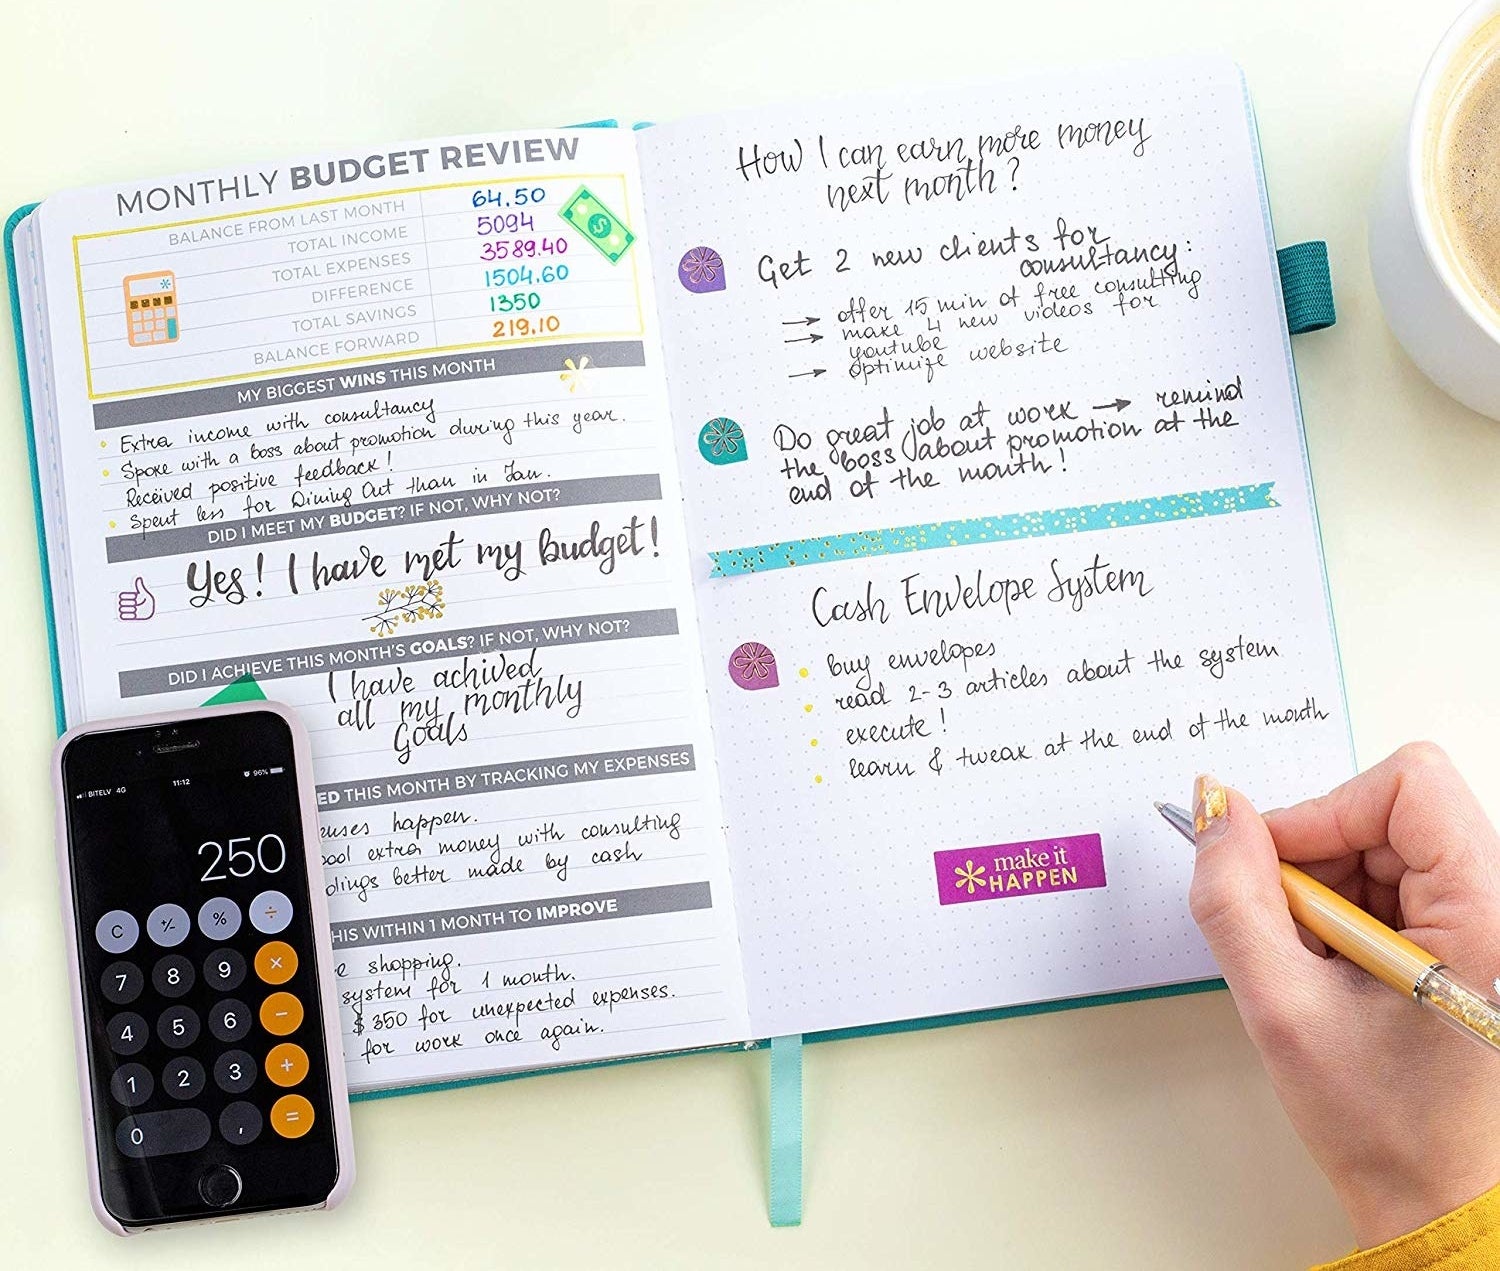 MONTHLY BUDGET REVIEW
BALANCE FROM LAST MONTH 64.50
TOTAL INCOME 5094
TOTAL EXPENSES 3589.40
DIFFERENCE 1504.60
TOTAL SAVINGS 1350
BALANCE FORWARD 219.10
MY BIGGEST WINS THIS MONTH
Extra income with consultancy
Spoke with a boss about promotion during this year.
Received positive feedback!
Spent less for Dining Out than in Jan.
DID I MEET MY BUDGET? IF NOT, WHY NOT?
Yes! I have met my budget!
DID I ACHIEVE THIS MONTH'S GOALS? IF NOT, WHY NOT?
I have achived
all my monthly
Goals
ED THIS MONTH BY TRACKING MY EXPENSES
happen.
extra money with consulting
better made by cash
HIS WITHIN 1 MONTH TO IMPROVE
shopping.
system for 1 month.
$350 for unexpected expenses.
for work once again.
How I can earn more money
next month?
Get 2 new clients for
consultancy:
→ offer 15 min of free consulting
→ make 4 new videos for
youtube
→ optimize website
Do great job at work → remind
the boss about promotion at the
end of the month!
Cash Envelope System
buy envelopes
read 2-3 articles about the system
execute!
learn & tweak at the end of the month
make it
HAPPEN
BITELV 4G 11:12 96%
250
C +/- % ÷
7 8 9 ×
4 5 6 −
1 2 3 +
0 , =
$